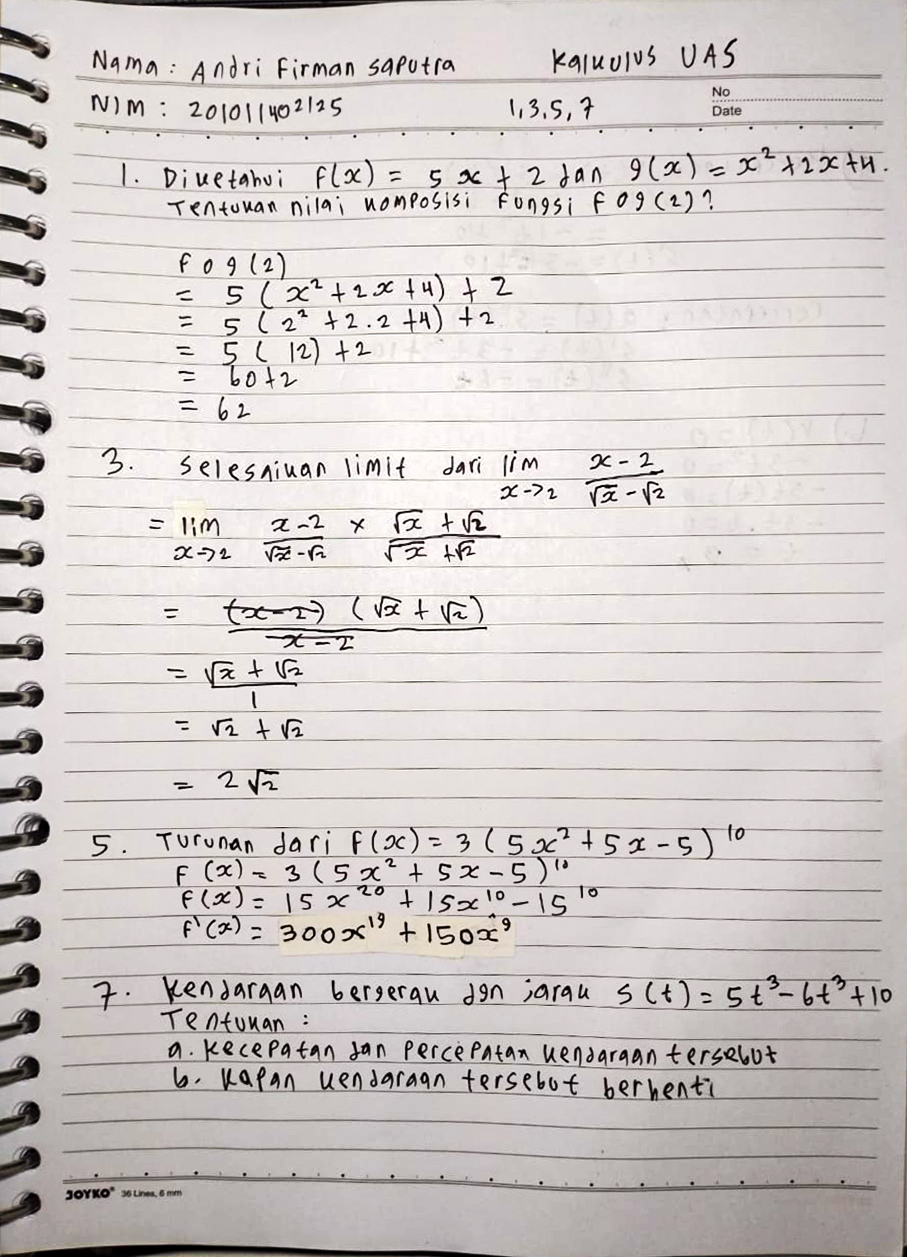 Nama : Andri Firman saputra
Kalkulus UAS
NIM : 201011402125
1,3,5,7
No
Date
1. Diketahui f(x) = 5x + 2 dan g(x) = x² + 2x + 4.
Tentukan nilai komposisi fungsi f o g (2)?
f o g (2)
= 5 (x² + 2x + 4) + 2
= 5 (2² + 2.2 + 4) + 2
= 5 (12) + 2
= 60 + 2
= 62
3. Selesaikan limit dari lim x->2 (x - 2)/(√x - √2)
= lim x->2 (x - 2)/(√x - √2) × (√x + √2)/(√x + √2)
= (x - 2) (√x + √2)/(x - 2)
= (√x + √2)/1
= √2 + √2
= 2√2
5. Turunan dari f(x) = 3 (5x² + 5x - 5)¹⁰
F (x) = 3 (5x² + 5x - 5)¹⁰
f(x) = 15x²⁰ + 15x¹⁰ - 15¹⁰
f'(x) = 300x¹⁹ + 150x⁹
7. Kendaraan bergerak dgn jarak s(t) = 5t³ - 6t³ + 10
Tentukan :
a. Kecepatan dan percepatan kendaraan tersebut
b. Kapan kendaraan tersebut berhenti
JOYKO® 36 Lines, 6 mm